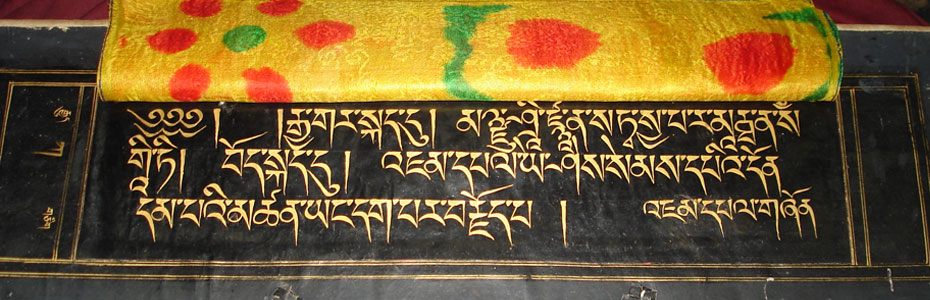 ༄༅༅། །རྒྱ་གར་སྐད་དུ། མཉྫུ་ཤྲཱི་ཛྙཱ་ན་ས་ཏྭ་སྱ་པ་ར་མཱརྠ་ནཱ་མ་སཾ
གཱི་ཏི། བོད་སྐད་དུ། འཇམ་དཔལ་ཡེ་ཤེས་སེམས་དཔའི་དོན་
དམ་པའི་མཚན་ཡང་དག་པར་བརྗོད་པ། འཇམ་དཔལ་གཞོན